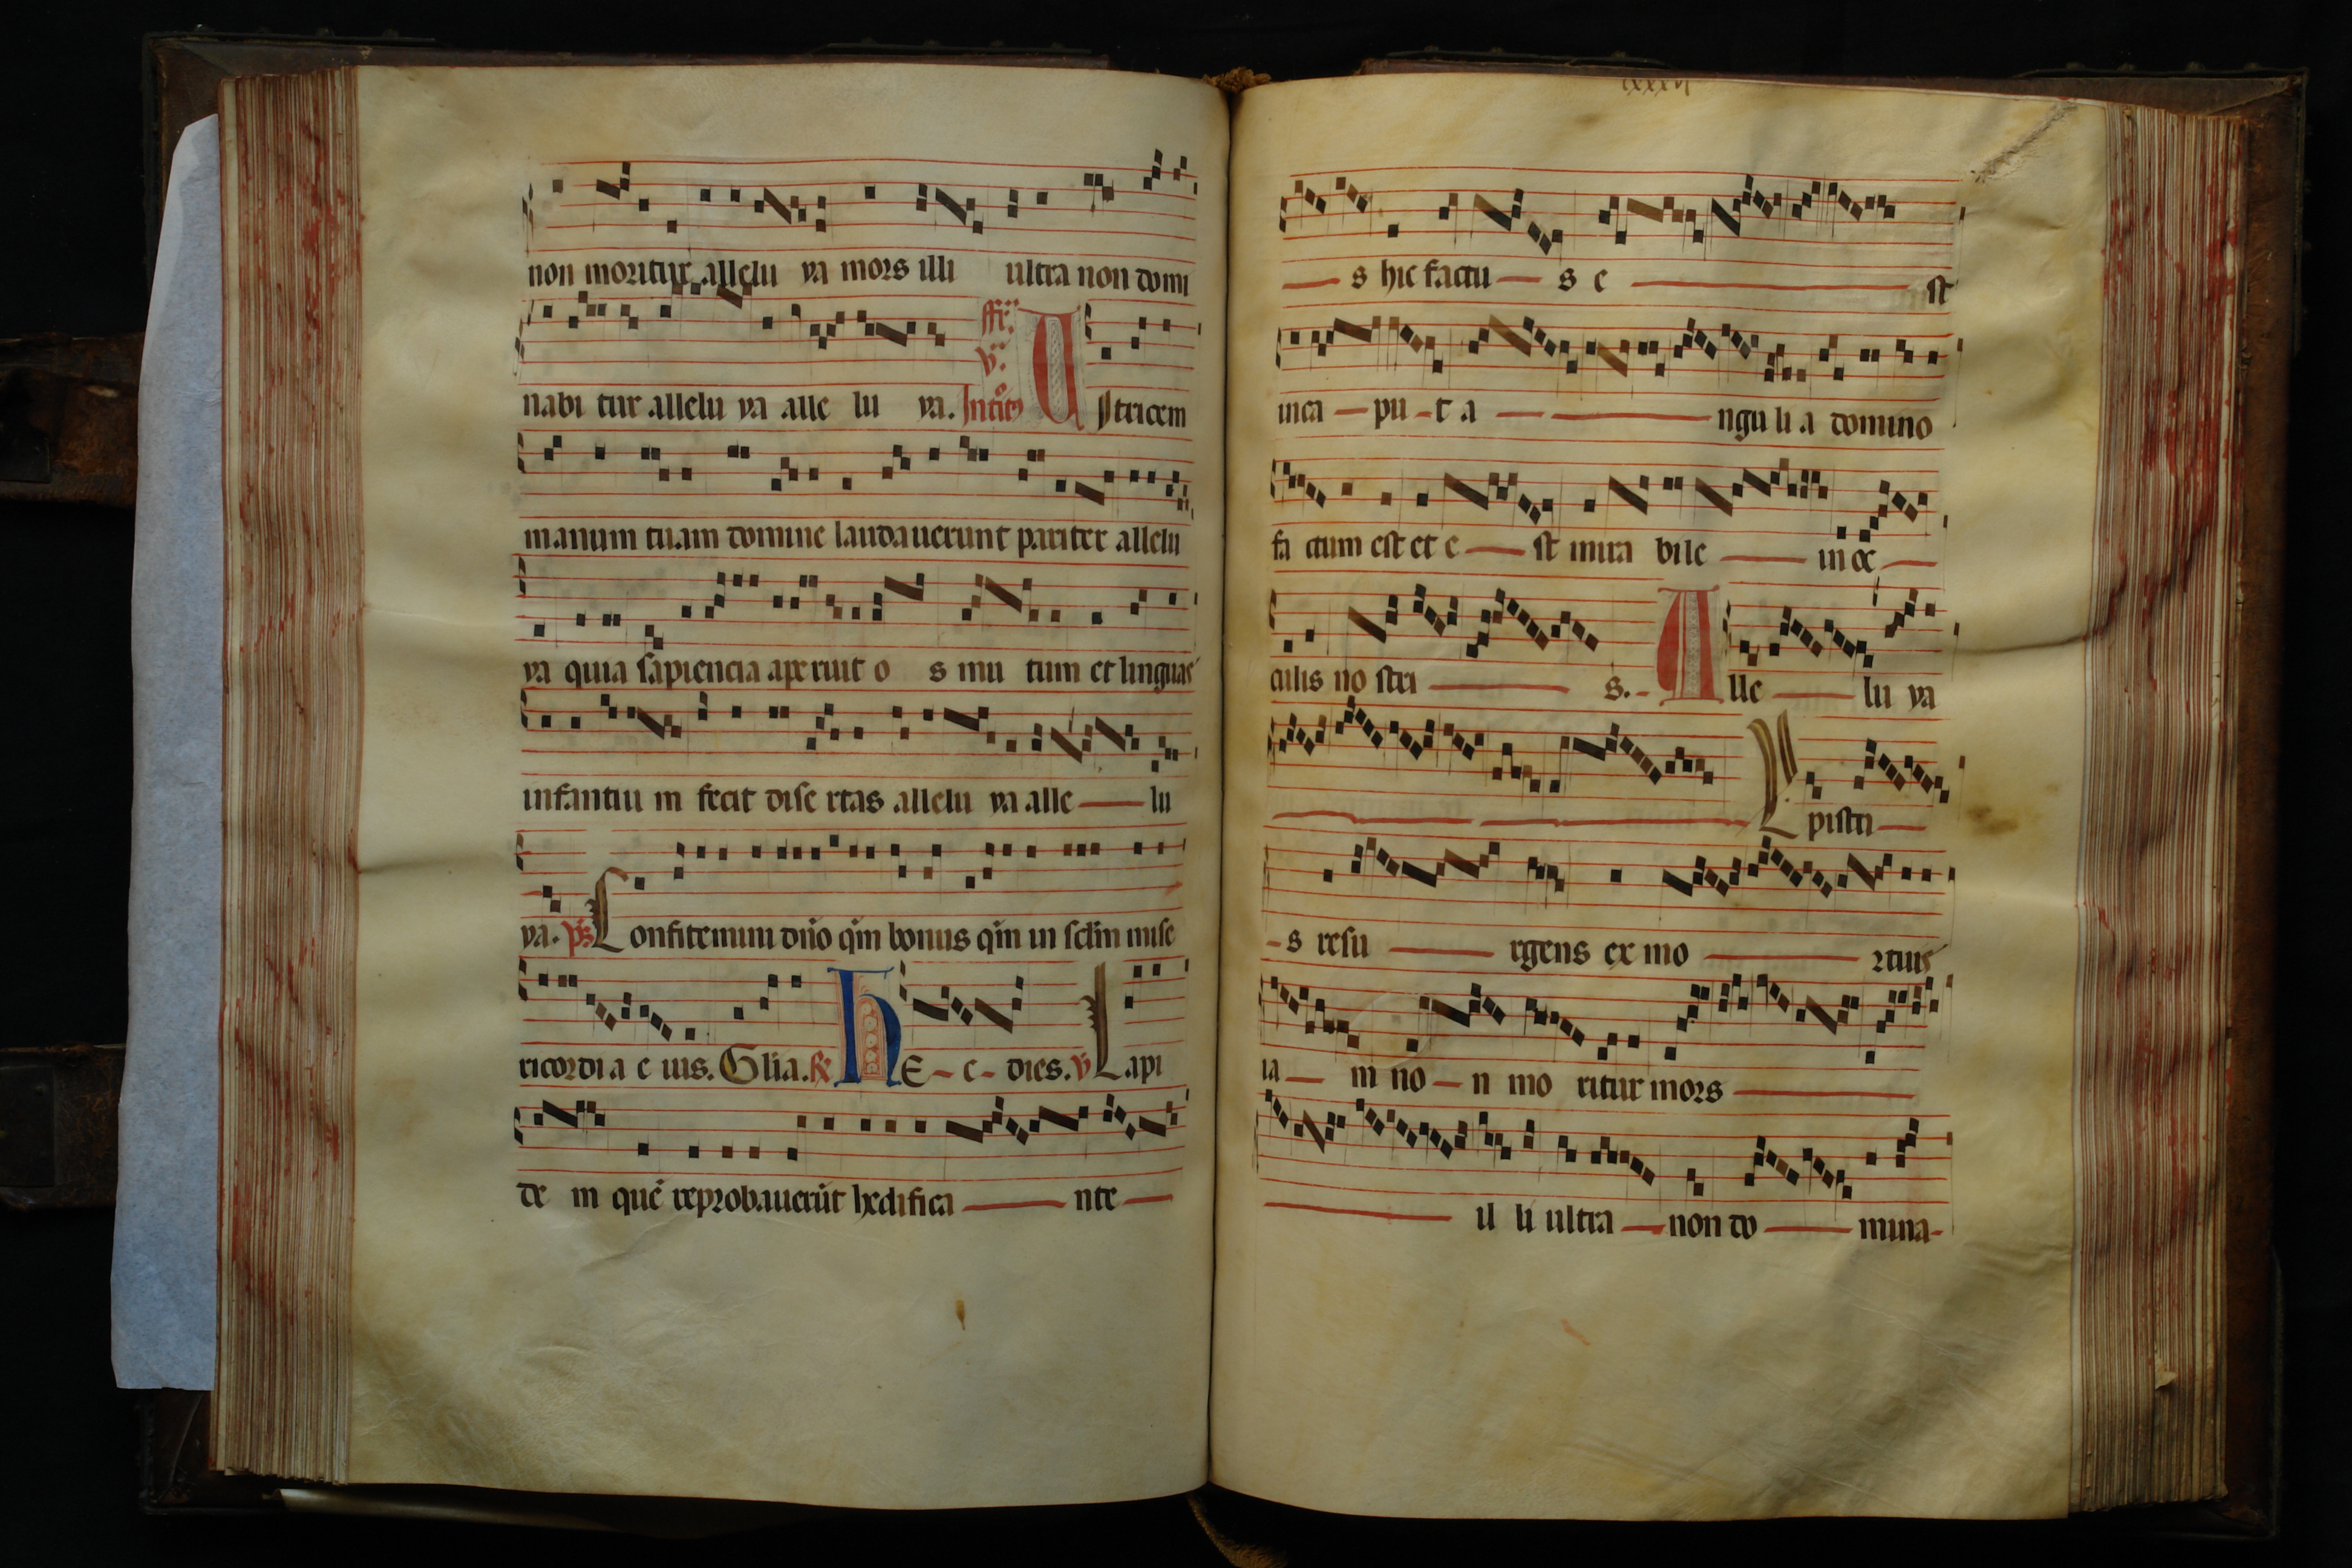 non moritur allelu ya mors illi ultra non domi
nabi tur allelu ya alle lu ya. V Ictricem
manum tuam domine laudauerunt pariter allelu
ya quia sapiencia aperuit o s mu tum et linguas
infantiu m fecit dise rtas allelu ya alle — lu
ya. ps Confitemini dño qm bonus qm in sclm mise
ricordi a e ius. Glia. R HE - c - dies. V Lapi
de m quē reprobauerūt hedifica — nte —
lxxxvj
— s hic factu — s e — st
inca — pu - t a — — ngu li a domino
fa ctum est et e — st mira bile — in oc —
culis no stri — s. - A lle — lu ya
— — — X pisti —
- s resu — rgens ex mo — rtuis
ia — m no — n mo ritur mors —
— il li ultra — non do — mina-